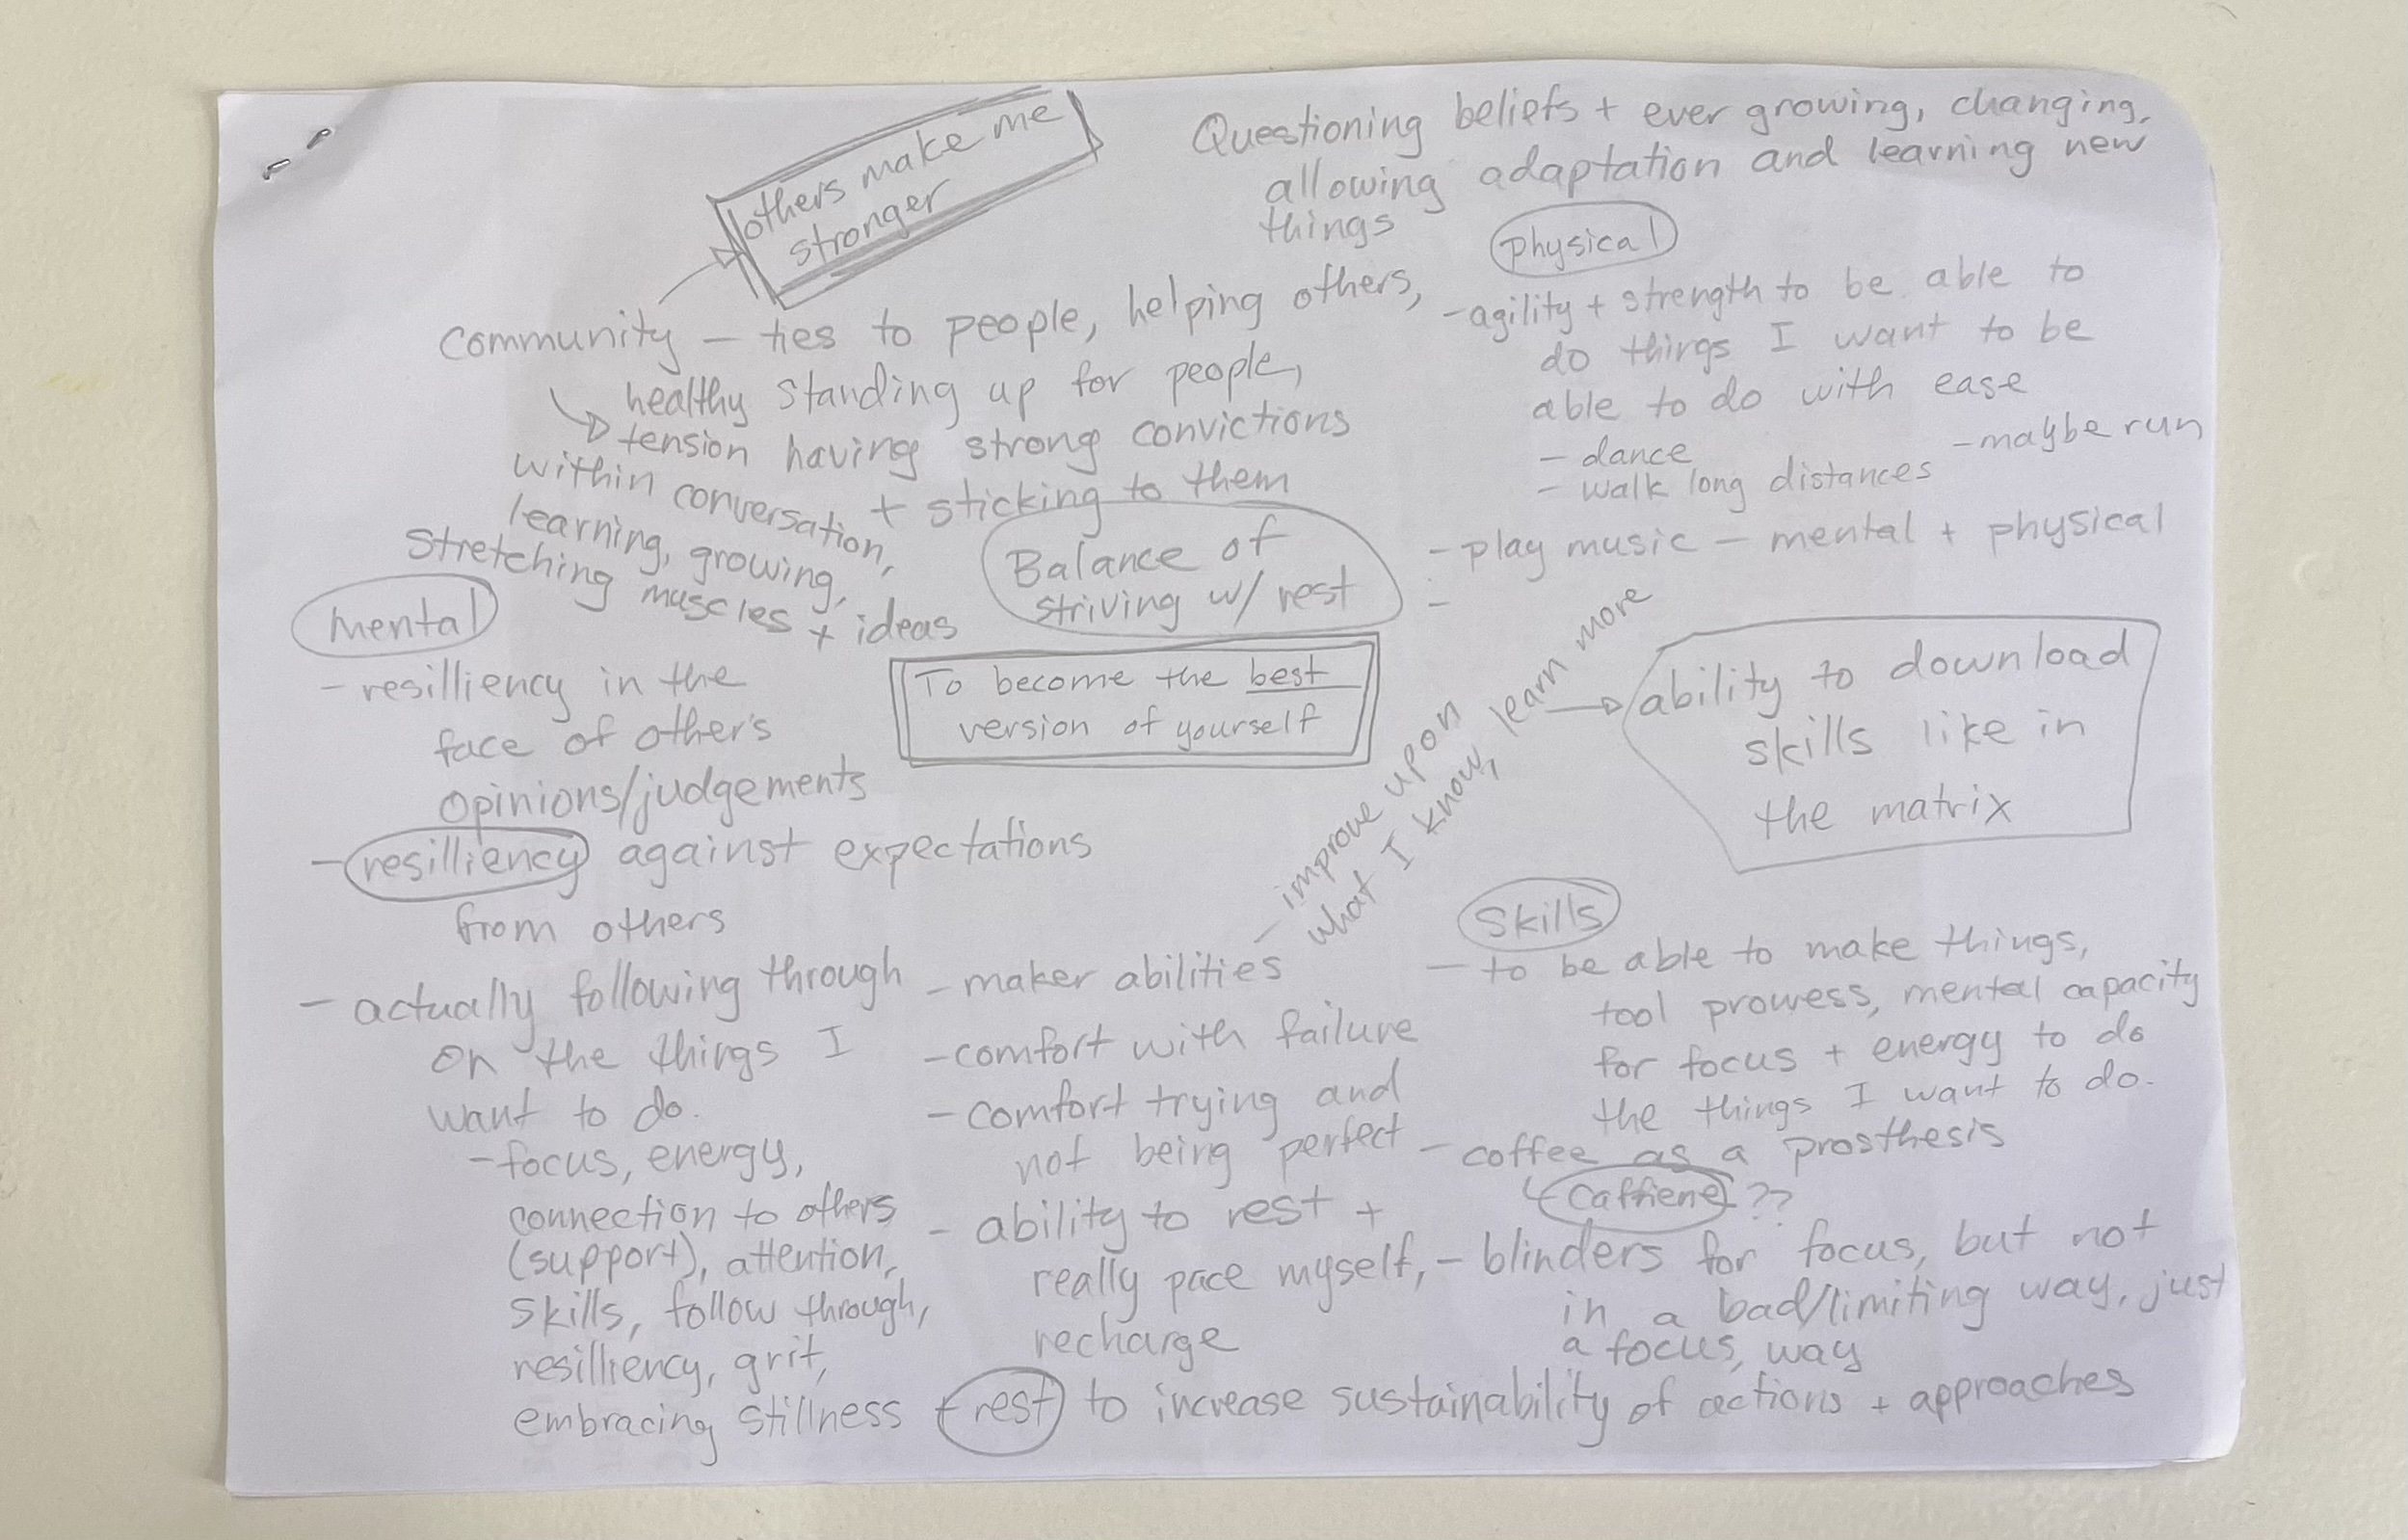 others make me
stronger
Questioning beliefs + ever growing, changing,
allowing adaptation and learning new
things
Community – ties to people, helping others,
standing up for people,
having strong convictions
+ sticking to them
healthy
tension
within conversation,
learning, growing,
stretching muscles + ideas
physical
- agility + strength to be able to
do things I want to be
able to do with ease
- dance
- maybe run
- walk long distances
- play music – mental + physical
-
Balance of
striving w/ rest
To become the best
version of yourself
mental
- resilliency in the
face of other's
opinions/judgements
- resilliency against expectations
from others
- actually following through
on the things I
want to do.
- focus, energy,
connection to others
(support), attention,
skills, follow through,
resilliency, grit,
embracing stillness + rest to increase sustainability of actions + approaches
- maker abilities
- improve upon
what I know, learn more
- comfort with failure
- comfort trying and
not being perfect
- ability to rest +
really pace myself,
recharge
ability to download
skills like in
the matrix
Skills
- to be able to make things,
tool prowess, mental capacity
for focus + energy to do
the things I want to do.
- coffee as a prosthesis
caffiene ??
- blinders for focus, but not
in a bad/limiting way, just
a focus, way